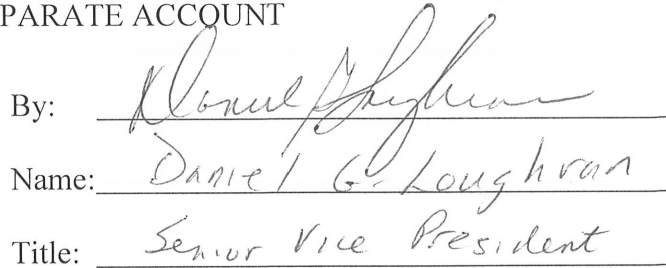 PARATE ACCOUNT
By: Daniel G Loughran
Name: Daniel G. Loughran
Title: Senior Vice President